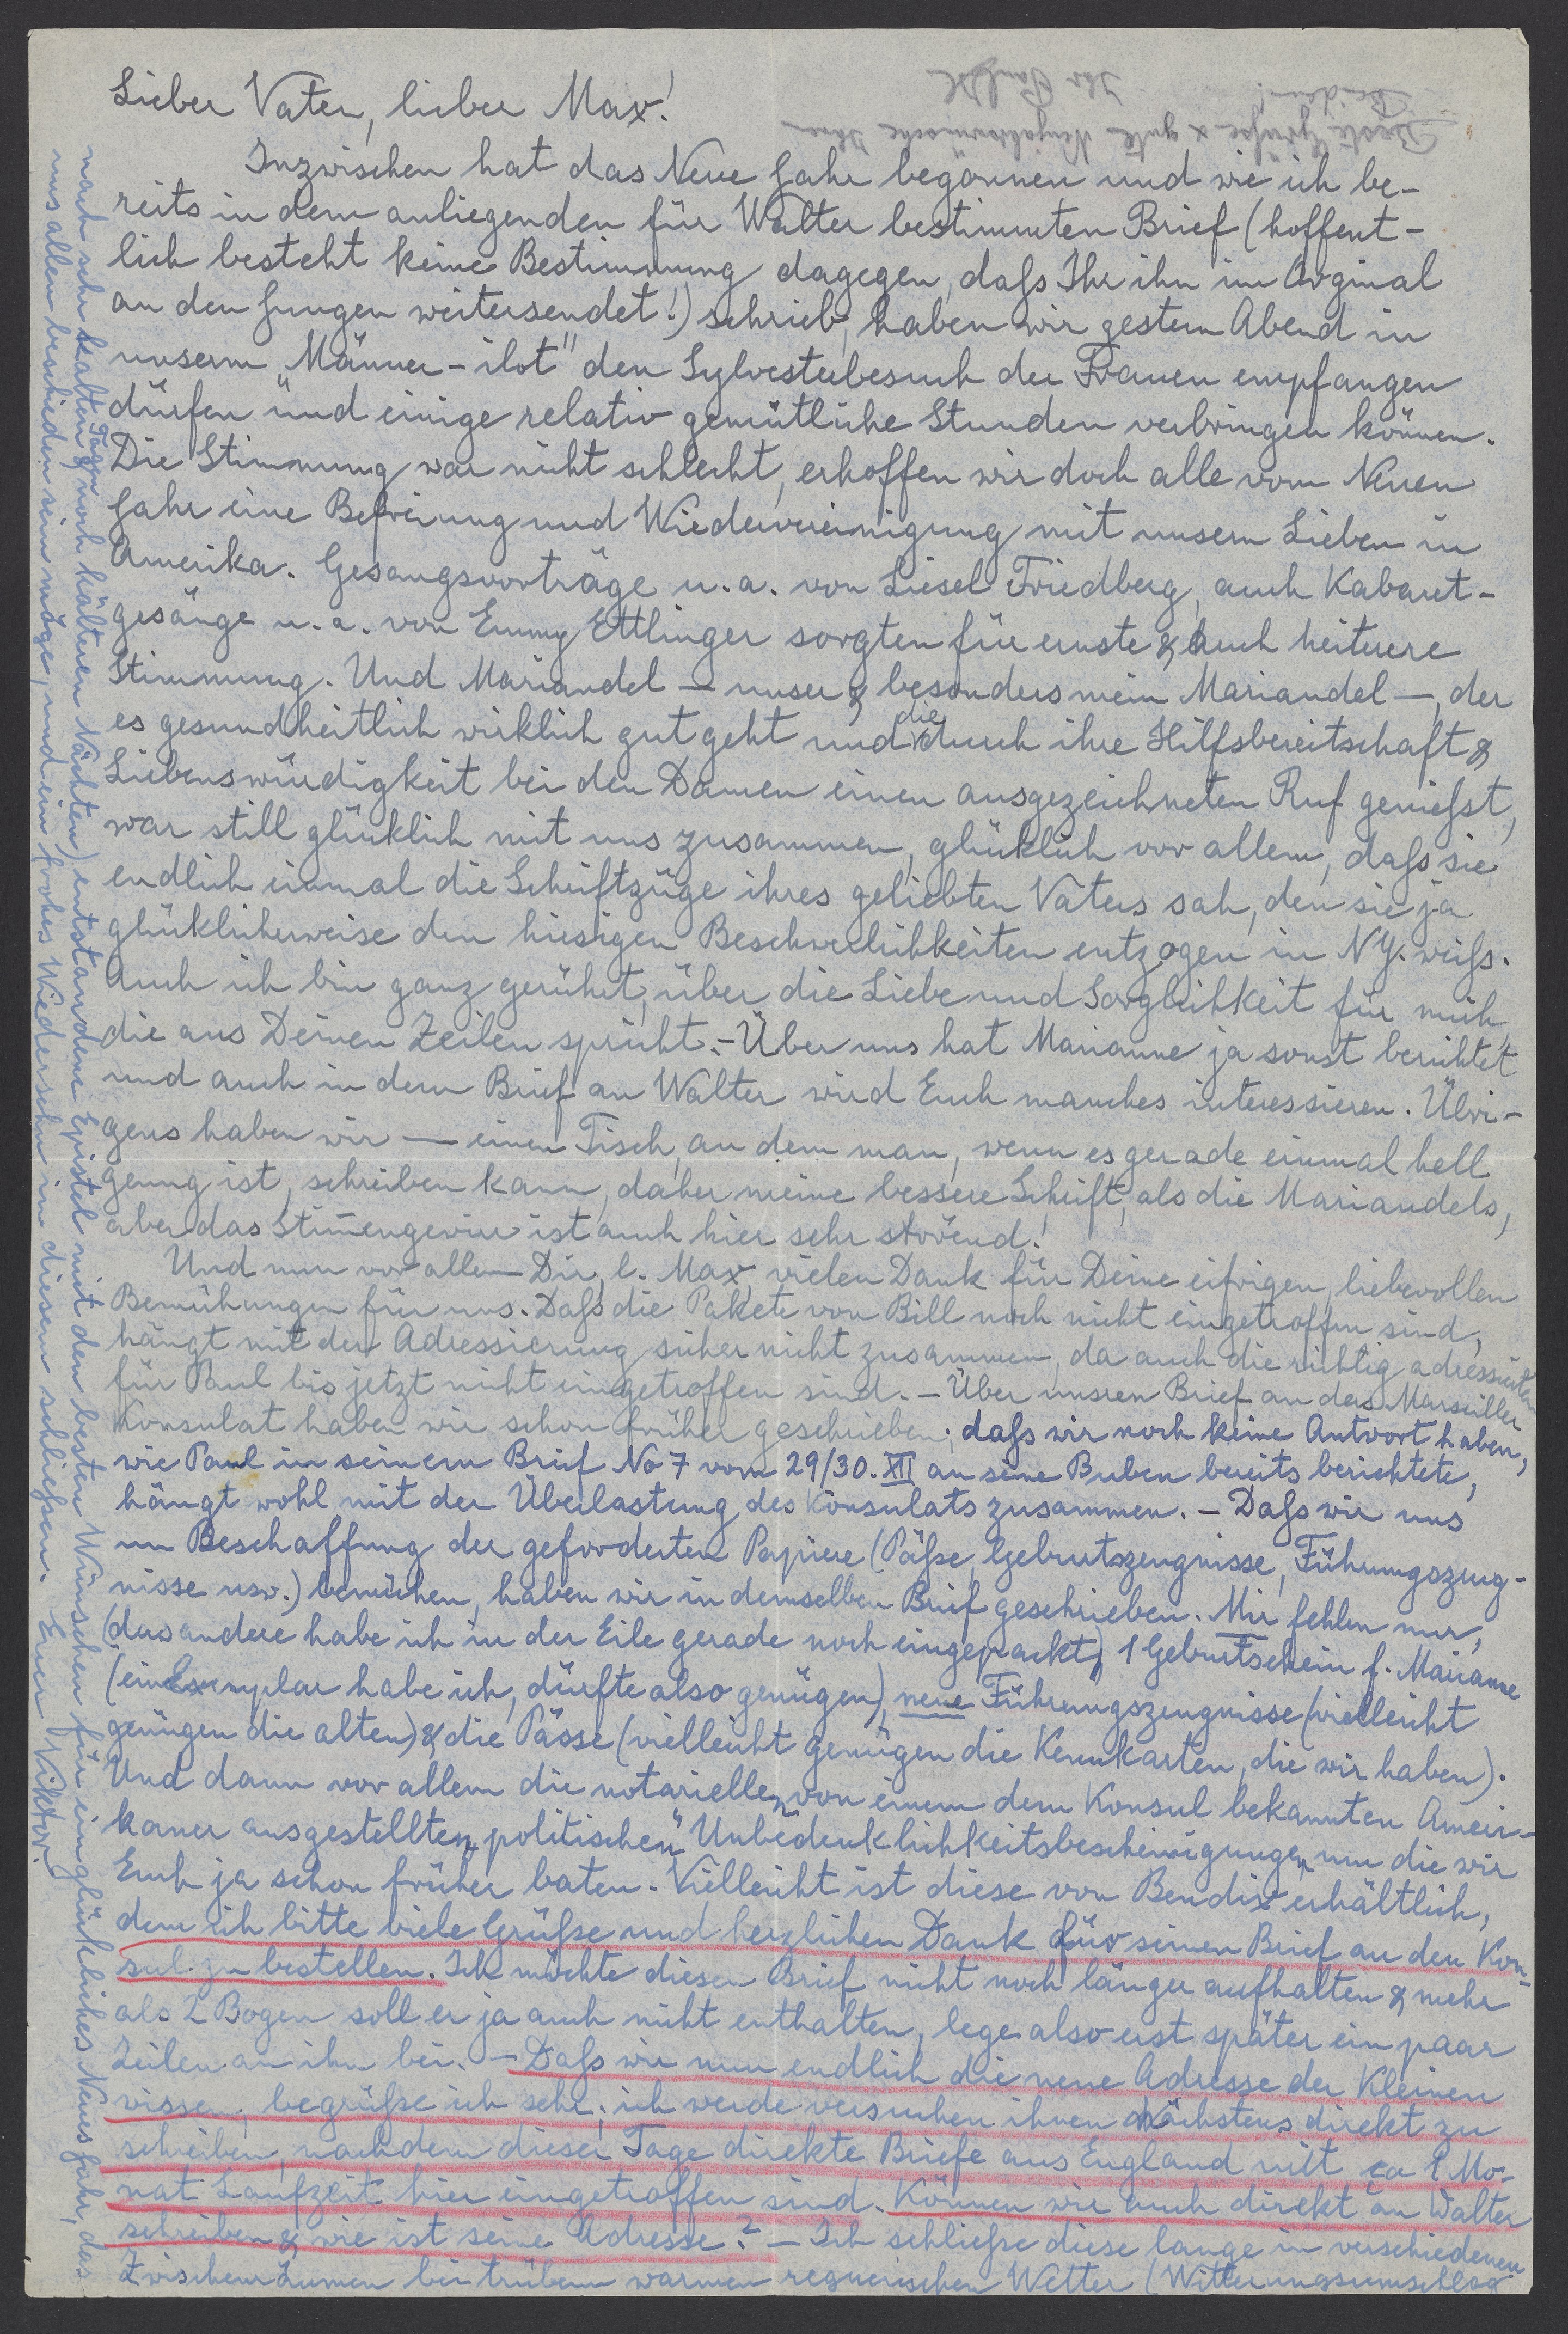 Lieber Vater, lieber Max!
Beste Grüße & gute Neujahrswünsche Ihnen
Beiden!
Ihr Paul
Inzwischen hat das Neue Jahr begonnen und wie ich be-
reits in dem anliegenden für Walter bestimmten Brief (hoffent-
lich besteht keine Bestimmung dagegen, daß Ihr ihn im Orginal
an den Jungen weitersendet!) schrieb, haben wir gestern Abend in
unserm „Männer-ilot" den Sylvesterbesuch der Frauen empfangen
dürfen und einige relativ gemütliche Stunden verbringen können.
Die Stimmung war nicht schlecht, erhoffen wir doch alle vom Neuen
Jahr eine Befreiung und Wiedervereinigung mit unsern Lieben in
Amerika. Gesangsvorträge u.a. von Liesel Friedberg, auch Kabaret-
gesänge u.a. von Emmy Ettlinger sorgten für ernste & auch heitere
Stimmung. Und Mariandel – unser & besonders mein Mariandel –, der
es gesundheitlich wirklich gut geht und die durch ihre Hilfsbereitschaft &
Liebenswürdigkeit bei den Damen einen ausgezeichneten Ruf genießt,
war still glücklich mit uns zusammen, glücklich vor allem, daß sie
endlich einmal die Schriftzüge ihres geliebten Vaters sah, den sie ja
glücklicherweise den hiesigen Beschwerlichkeiten entzogen in NY. weiß.
Auch ich bin ganz gerührt, über die Liebe und Sorglichkeit für mich,
die aus Deinen Zeilen spricht. – Über uns hat Marianne ja sonst berichtet
und auch in dem Brief an Walter wird Euch manches interessieren. Übri-
gens haben wir – einen Tisch, an dem man, wenn es gerade einmal hell
genug ist, schreiben kann, daher meine bessere Schrift, als die Mariandels,
aber das Stimengewirr ist auch hier sehr störend!
Und nun vor allem Dir, l. Max, vielen Dank für Deine eifrigen, liebevollen
Bemühungen für uns. Daß die Pakete von Bill noch nicht eingetroffen sind,
hängt mit der Adressierung sicher nicht zusammen, da auch die richtig adressierten
für Paul bis jetzt nicht eingetroffen sind. – Über unsren Brief an das Marseiller
Konsulat haben wir schon früher geschrieben; daß wir noch keine Antwort haben,
wie Paul in seinem Brief No 7 vom 29/30. XII an seine Buben bereits berichtete,
hängt wohl mit der Überlastung des Konsulats zusammen. – Daß wir uns
um Beschaffung der geforderten Papiere (Päße, Geburtszeugnisse, Führungszeug-
nisse usw.) bemühen, haben wir in demselben Brief geschrieben. Mir fehlen nur,
(das andere habe ich in der Eile gerade noch eingepackt) 1 Geburtschein f. Marianne
(ein Exemplar habe ich, dürfte also genügen), neue Führungszeugnisse (vielleicht
genügen die alten) & die Pässe (vielleicht genügen die Kennkarten, die wir haben).
Und dann vor allem die notariellen von einem dem Konsul bekannten Ameri-
kaner ausgestellten „politischen" Unbedenklichkeitsbescheinigungen, um die wir
Euch ja schon früher baten. Vielleicht ist diese von Bendix erhältlich,
dem ich bitte viele Grüße und herzlichen Dank für seinen Brief an den Kon-
sul zu bestellen. Ich möchte diesen Brief nicht noch länger aufhalten & mehr
als 2 Bogen soll er ja auch nicht enthalten, lege also erst später ein paar
Zeilen an ihn bei. – Daß wir nun endlich die neue Adresse der Kleinen
wissen, begrüße ich sehr; ich werde versuchen ihnen nächstens direkt zu
schreiben, nachdem dieser Tage direkte Briefe aus England mit ca 1 Mo-
nat Laufzeit hier eingetroffen sind. Können wir auch direkt an Walter
schreiben & wie ist seine Adresse? – Ich schließe diese lange in verschiedenen
Zwischenräumen bei trübem warmen regnerischen Wetter (Witterungsumschlag
nach sehr kalten Tagen & noch kälteren Nächten) entstandene Epistel mit den besten Wünschen für ein glückliches Neues Jahr, das
uns allen beschieden sein möge, und ein frohes Wiedersehn in diesem schließen. Euer Viktor.